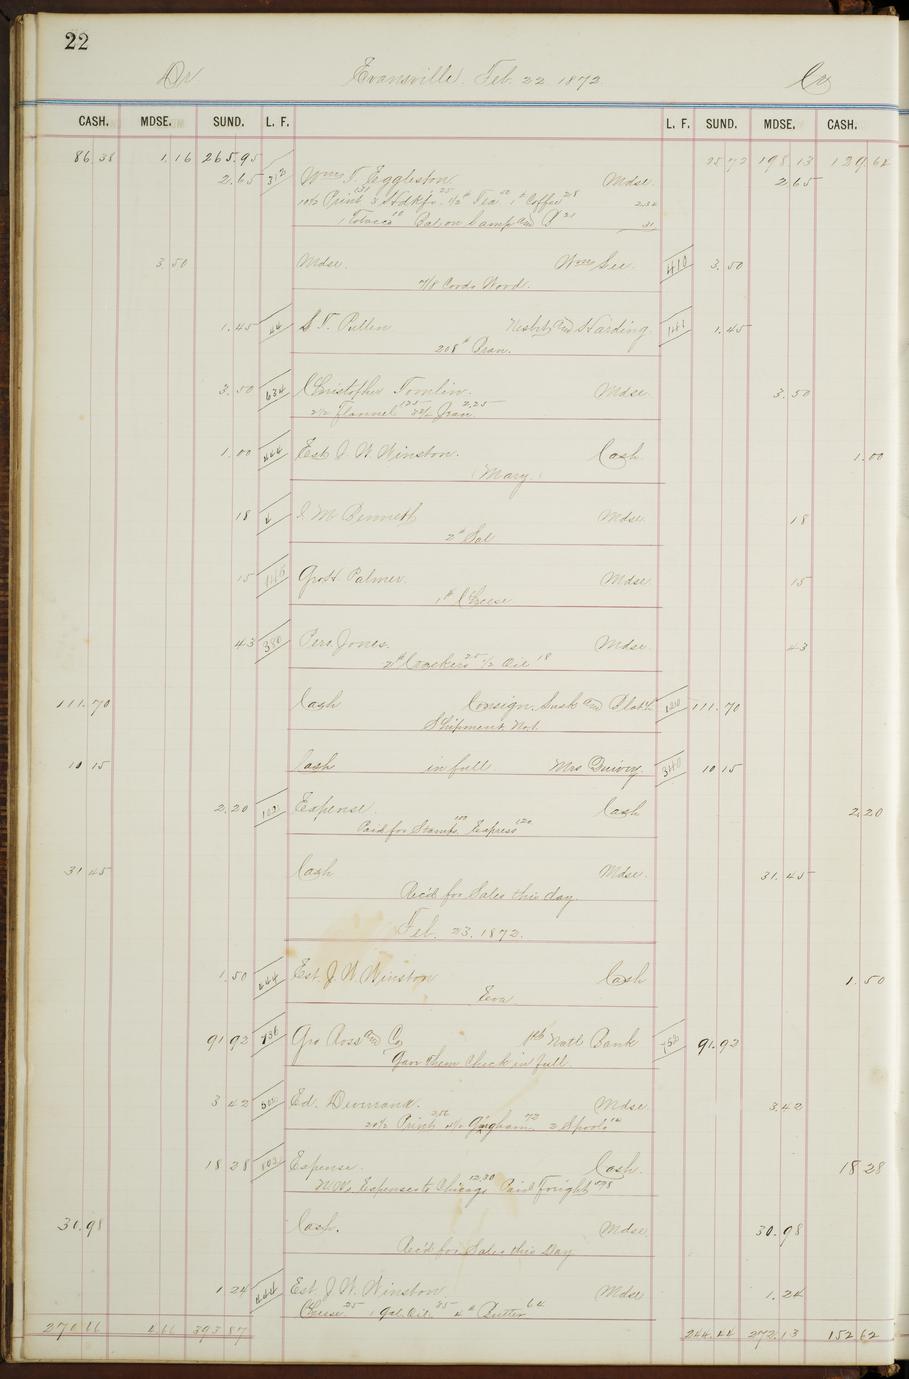 22
Dr Evansville Feb. 22 1872 Cr
CASH. MDSE. SUND. L. F. L. F. SUND. MDSE. CASH.
86 38 1.16 265.95 25 72 198 13 129 64
2.65 312 Wm T. Eggleston Mdse. 2 65
10½ Print 131 3 Hdkfs 25 ½# Tea 1# Coffee 28 2.34
1 Tobacco 10 Bal. on Lamp and 21 31
3 50 Mdse. Wm Lee 410 3. 50
7/8 Cords Wood.
1. 45 S. T. Pullen Nesbit and Harding. 1. 45
208# Bran.
3. 50 634 Christopher Tomlin. Mdse 3. 50
2½ Flannel 125 22½ Jean 2.25
1.00 444 Est J. W. Winston. Cash 1.00
(Mary.)
18 J. M. Bennett Mdse. 18
2# Sal
15 Geo H. Palmer. Mdse 15
1# Cheese
43 380 Perc. Jones. Mdse 43
2# Crackers 25 ½ Oil 18
111. 70 Cash Consign. Lusk and 111. 70
Shipment No 1.
10 15 Cash in full Mrs Quivey. 340 10 15
2.20 102 Expense. Cash 2.20
Paid for Stamps 100 Express 120
31 45 Cash Mdse. 31. 45
Rec'd for Sales this day.
Feb. 23. 1872.
1. 50 444 Est. J. W. Winston Cash 1. 50
Eva
91 92 736 Geo Ross and Co 1st Natl Bank 91. 92
Gave them Check in full.
3 42 500 Ed. Mdse. 3.42
20½ Print Gingham 72 2 Spools 14
18 28 102 Expense. Cash. 18 28
Expenses to Chicago 12.30 Paid Freight 598
30.98 Cash. Mdse. 30.98
Rec'd for Sales this Day
1 24 444 Est J. W. Winston. Mdse 1. 24
Cheese 25 1 Gal. Oil. 35 4# Butter 64
270 66 4.66 393 87 244.44 272.13 152 62